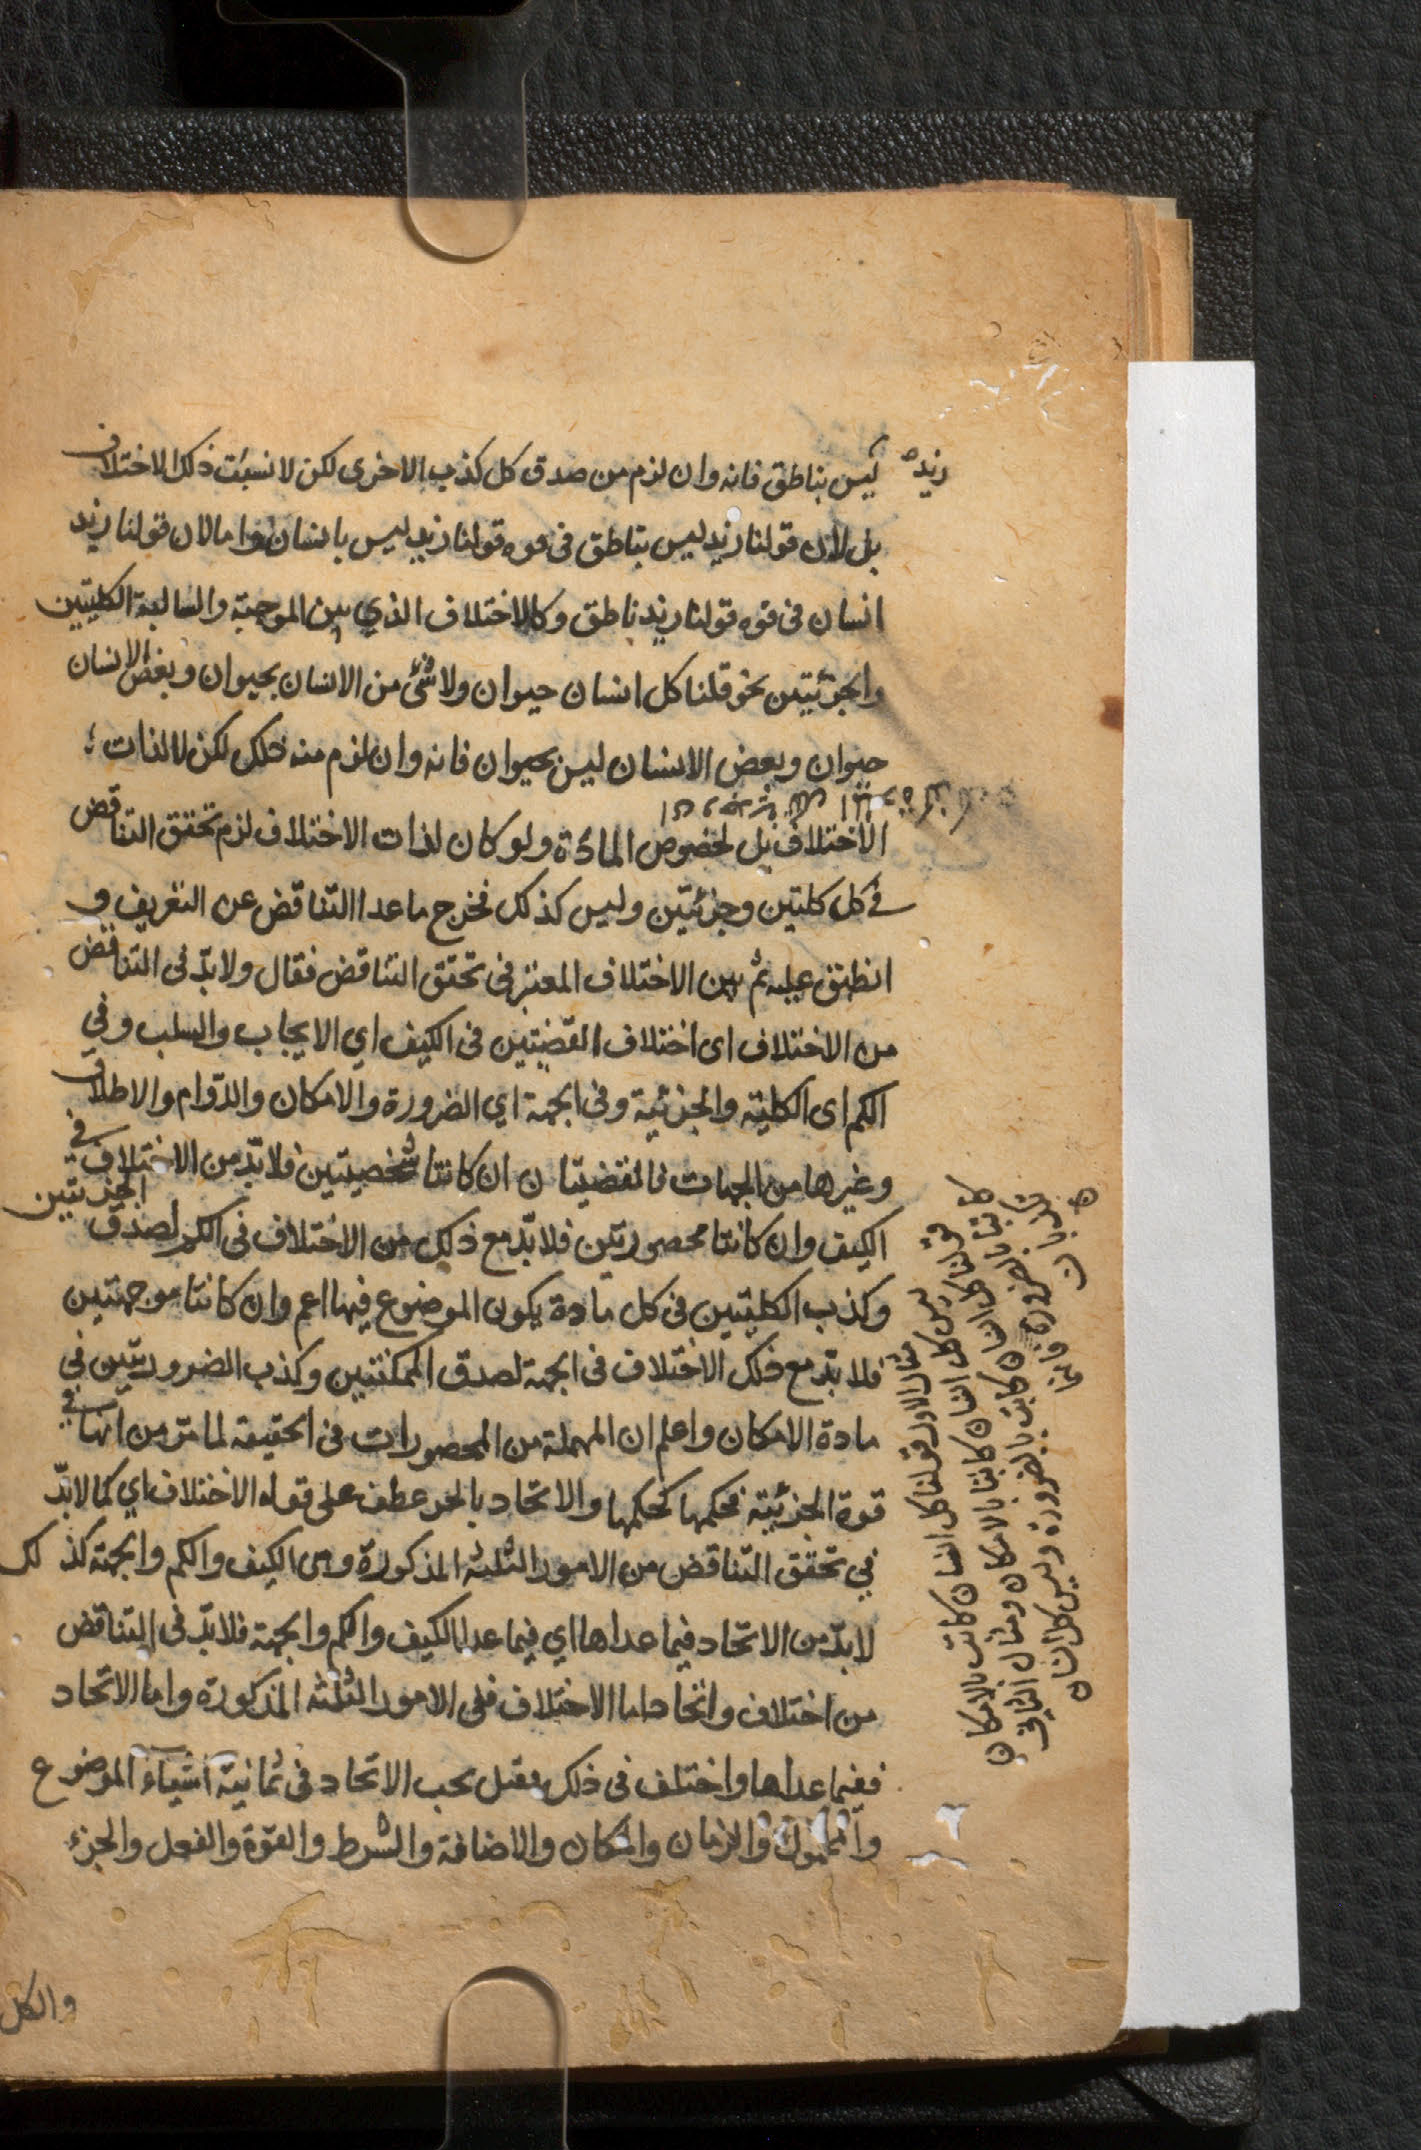 زيد ليس بناطق فانه وان لزم من صدق كل كذب الاخرى لكن لا نسبت ذلك الاختلاف
بل لان قولنا زيد ليس بناطق فى قوه قولنا زيد ليس بانسان واما لان قولنا زيد
انسان فى قوه قولنا زيد ناطق وكالاختلاف الذي بين الموجبة والسالبة الكليتين
والجزئيتين نحو قلنا كل انسان حيوان ولا شئ من الانسان بحيوان وبعض الانسان
حيوان وبعض الانسان ليس بحيوان فانه وان لزم منه ذلك لكن لا لذات
الاختلاف بل لخصوص المادة ولو كان لذات الاختلاف لزم تحقق التناقض
فى كل كليتين وجزئيتين وليس كذلك فخرج ما عدا التناقض عن التعريف و
انطبق عليه ثم بين الاختلاف المعتبر فى تحقق التناقض فقال ولا بدّ فى التناقض
من الاختلاف اى اختلاف القضيتين فى الكيف اي الايجاب والسلب وفي
الكم اى الكلية والجزئية وفى الجهة اي الضرورة والامكان والدوام والاطلاق
وغيرها من الجهات فالقضيتان ان كانتا شخصيتين فلا بدّ من الاختلاف في
الكيف وان كانتا محصورتين فلا بدّ مع ذلك من الاختلاف فى الكم لصدق الجزئيتين
وكذب الكليتين فى كل مادة يكون الموضوع فيها اعم وان كانتا موجهتين
فلا بدّ مع ذلك الاختلاف فى الجهة لصدق الممكنتين وكذب الضروريتين فى
مادة الامكان واعلم ان المهملة من المحصورات فى الحقيقة لما مرّ من انها في
قوة الجزئية فحكمها كحكمها والاتحاد بالجر عطف على قوله الاختلاف اي كما لا بدّ
في تحقق التناقض من الامور الثلثه المذكورة وهى الكيف والكم والجهة كذلك
لا بدّ من الاتحاد فيما عداها اي فيما عدا الكيف والكم والجهة فلا بدّ فى التناقض
من اختلاف واتحاد اما الاختلاف ففى الامور الثلثه المذكورة واما الاتحاد
ففيما عداها واختلف فى ذلك فقيل يجب الاتحاد فى ثمانية اشياء الموضوع
والمحمول والزمان والمكان والاضافة والشرط والقوة والفعل والجزء
والكل
مثال الاول قولنا كل انسان كاتب بالامكان
ليس كل انسان كاتبا بالامكان ومثال الثاني
قولنا كل انسان كاتب بالضرورة وليس كل انسان
كاتبا بالضرورة فانهما
كاذبان